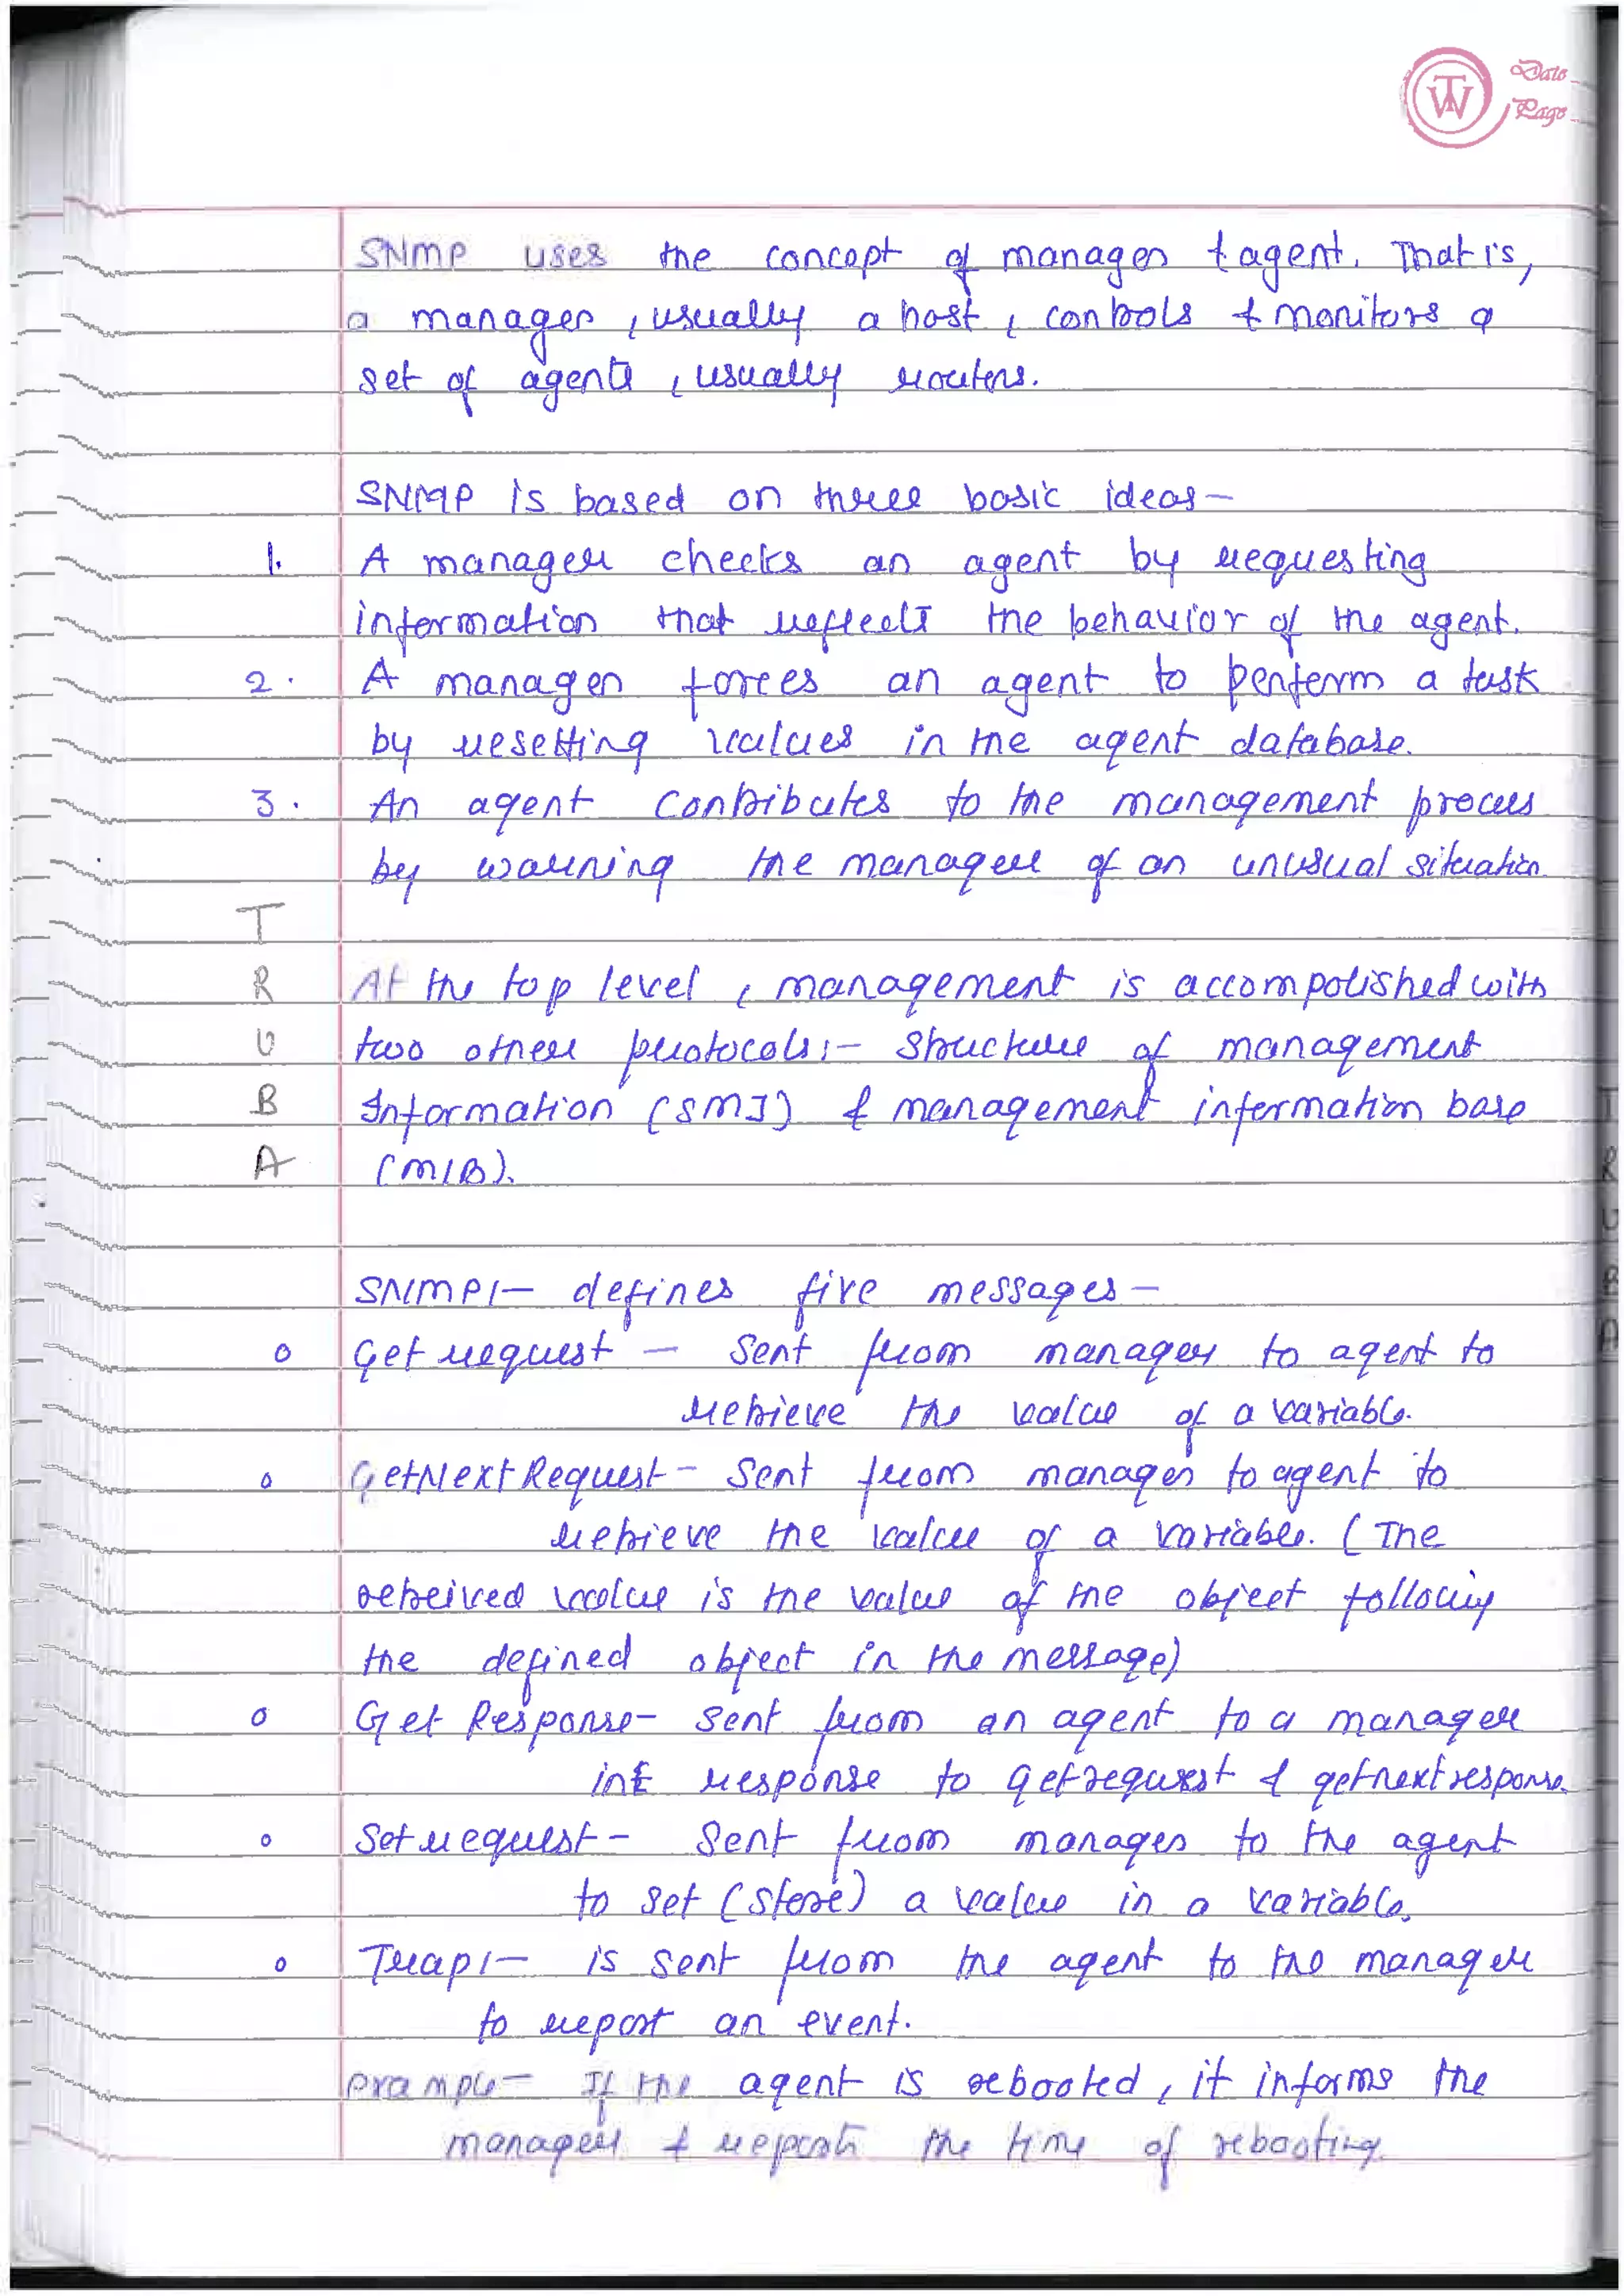 TW Date
Page
SNMP uses the concept of manager & agent. That is,
a manager, usually a host, controls & monitors a
set of agents, usually routers.
SNMP is based on three basic ideas—
1. A manager checks an agent by requesting
information that reflects the behavior of the agent.
2. A manager forces an agent to perform a task
by resetting values in the agent database.
3. An agent contributes to the management process
by warning the manager of an unusual situation
T
R At the top level, management is accompolished with
U two other protocols:- Structure of management
B Information (SMI) & management information base
A (MIB).
SNMP:- defines five messages—
o Get request — Sent from manager to agent to
retrieve the value of a variable.
o GetNext Request- Sent from manager to agent to
retrieve the value of a variable. (The
retreived value is the value of the object following
the defined object in the message)
o Get Response- Sent from an agent to a manager
in response to getrequest & getnextresponse.
o Set request- Sent from manager to the agent
to set (store) a value in a variable.
o Trap:- is sent from the agent to the manager
to report an event.
example- If the agent is rebooted, it informs the
manager & reports the time of rebooting.